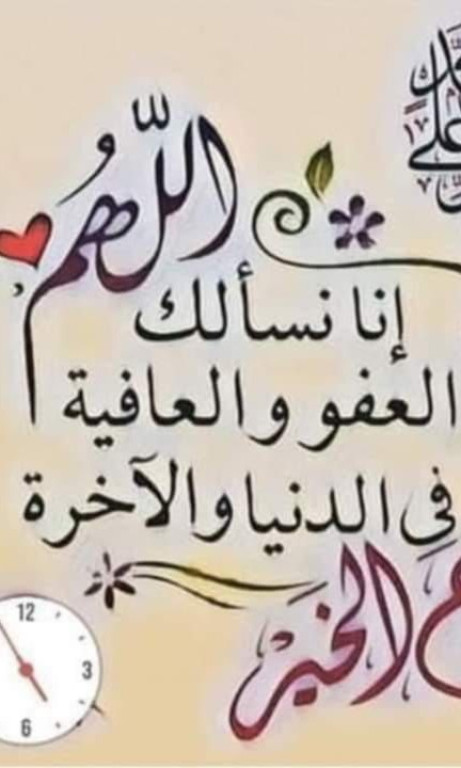 على
اللهم
إنا نسألك
العفو والعافية
في الدنيا والآخرة
الخير
12
3
6